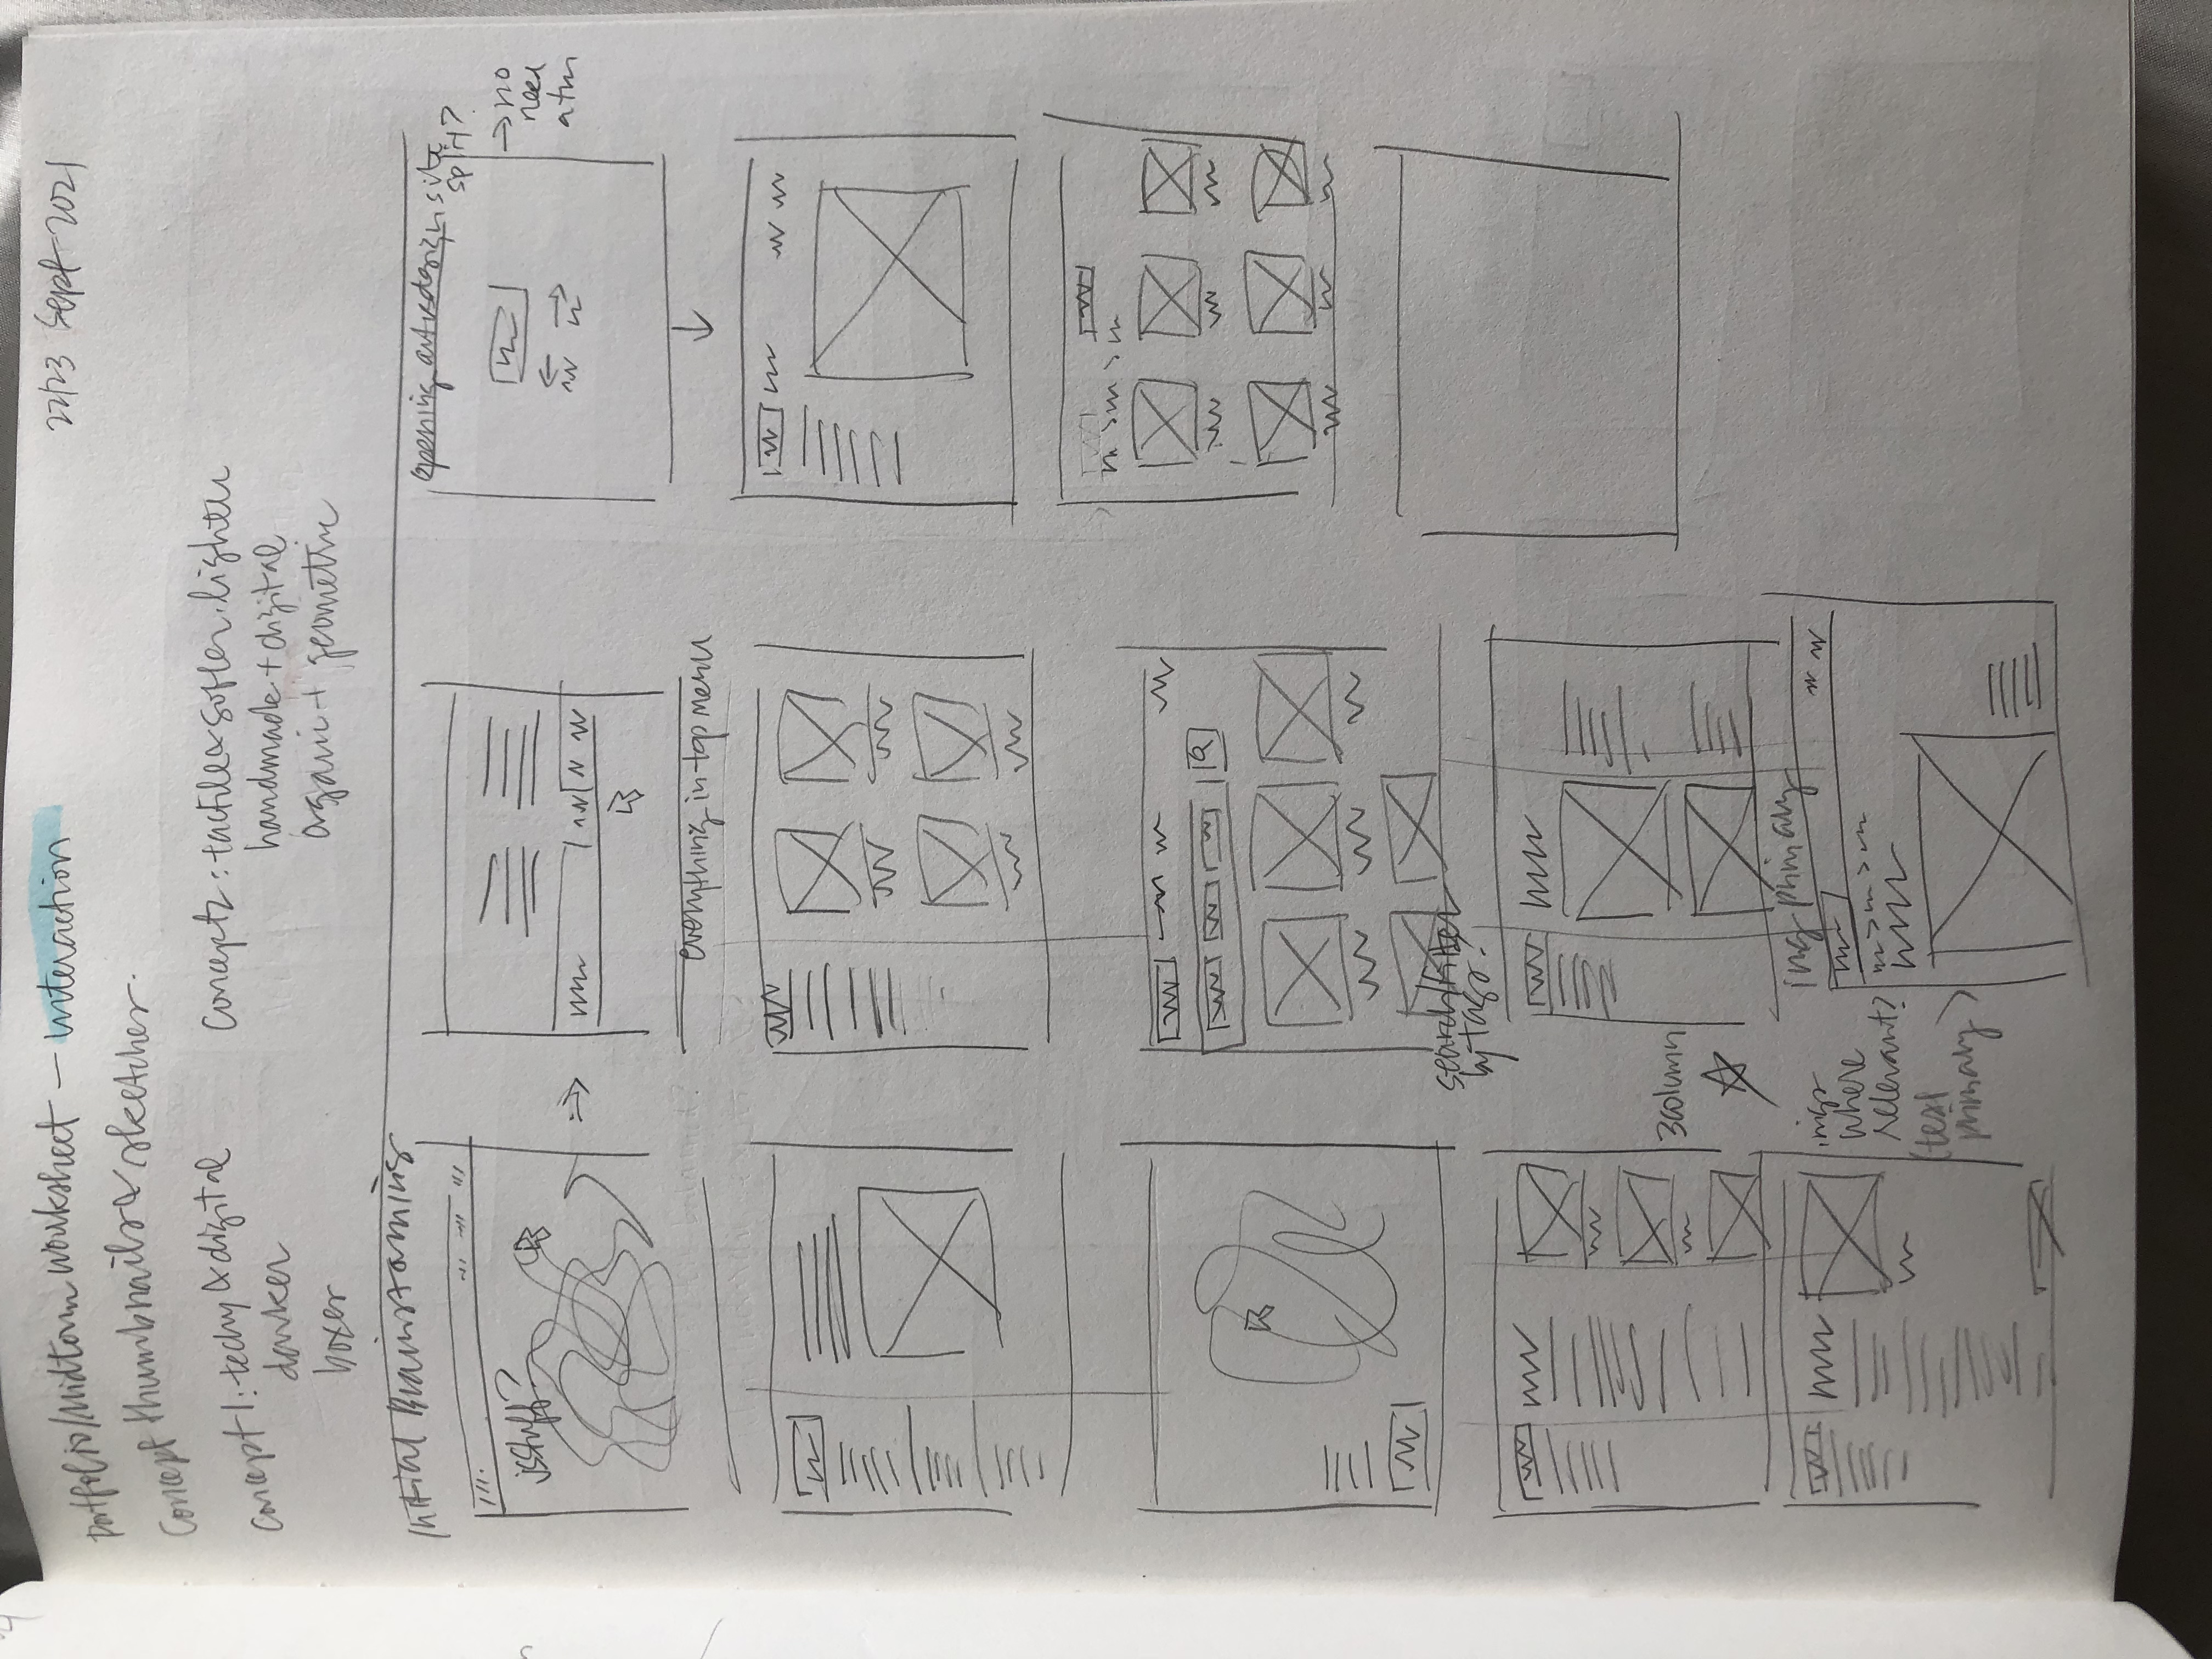 Portfolio/Midterm Worksheet – Interaction
22/23 Sept 2021
Concept thumbnails & sketches.
Concept 1: techy & digital
darker
boxes
Concept 2: tactile & softer. lighter
handmade + digital
organic + geometric
Initial Brainstorming
opening art & design site
split?
→ no
need
atm
js stuff?
everything in top menu
search/filter
by tags?
3 column
img primary
imgs
where
relevant?
(text
primary)